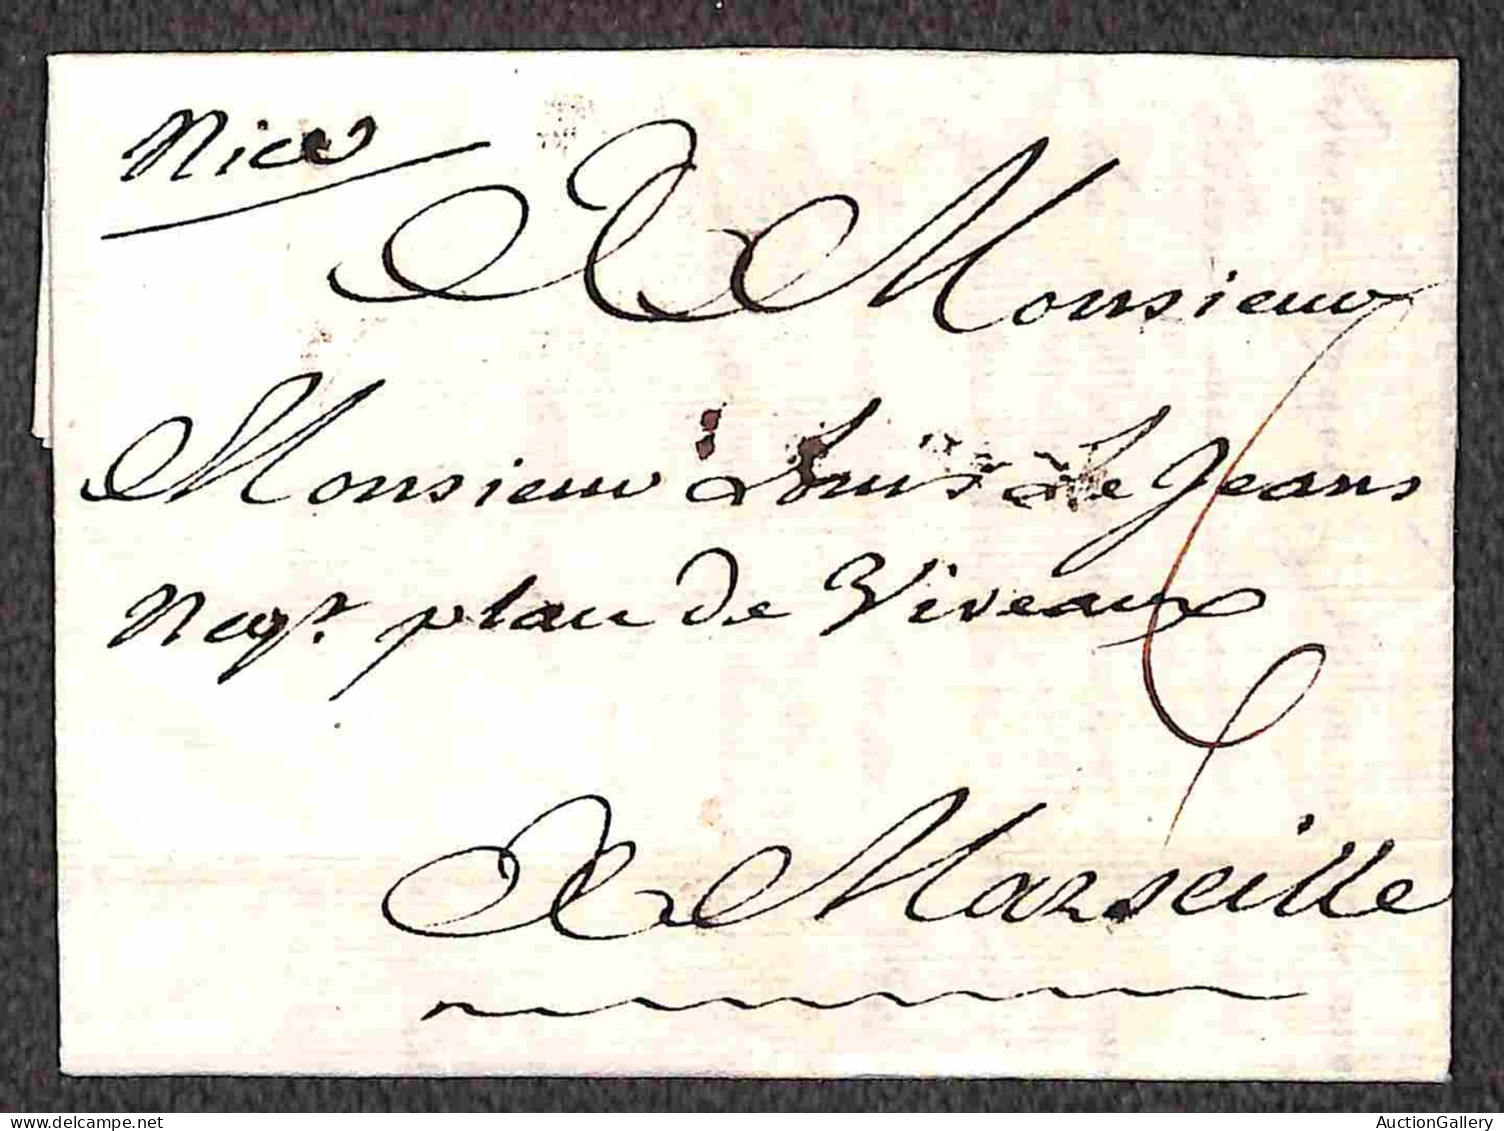 Nice
A Monsieur
Monsieur Louis Le Jeans
Negt. plan de Viveaux
6
A Marseille
AuctionGallery